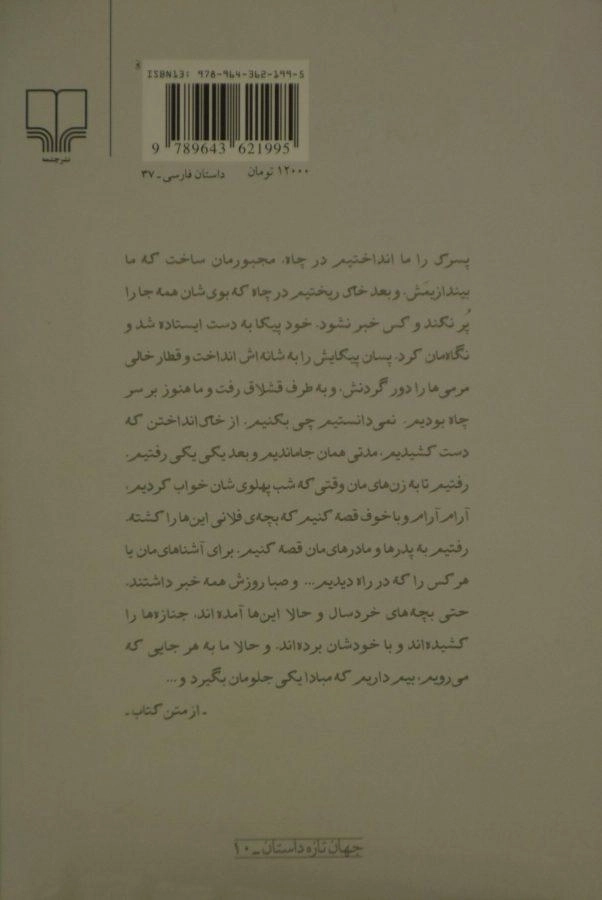 ISBN13: 978-964-362-199-5
9 789643 621995
نشرچشمه
داستان فارسی ـ ۳۷
۱۲۰۰۰ تومان
پسرک را ما انداختیم در چاه. مجبورمان ساخت که ما
بیندازیمَش. و بعد خاک ریختیم در چاه که بوی‌شان همه جا را
پُر نکند و کس خبر نشود. خود پیکا به دست ایستاده شد و
نگاه‌مان کرد. پسان پیکایش را به شانه‌اش انداخت و قطار خالی
مرمی‌ها را دور گردنش. و به طرف قشلاق رفت و ما هنوز بر سر
چاه بودیم. نمی‌دانستیم چی بکنیم. از خاک‌انداختن که
دست کشیدیم، مدتی همان جا ماندیم و بعد یکی یکی رفتیم.
رفتیم تا به زن‌های‌مان وقتی که شب پهلوی‌شان خواب کردیم،
آرام آرام و با خوف قصه کنیم که بچه‌ی فلانی این‌ها را کشته.
رفتیم به پدرها و مادرهای‌مان قصه کنیم. برای آشناهای‌مان یا
هر کس را که در راه دیدیم... و صبا روزش همه خبر داشتند.
حتی بچه‌های خردسال و حالا این‌ها آمده‌اند، جنازه‌ها را
کشیده‌اند و با خودشان برده‌اند. و حالا ما به هر جایی که
می‌رویم، بیم داریم که مبادا یکی جلومان بگیرد و...
ـ از متن کتاب ـ
جهان تازه داستان ـ ۱۰